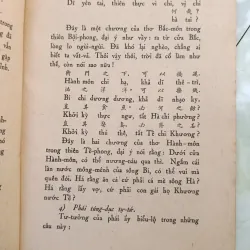 Dĩ yên tai, thiên thực vi chi, vị chi
何 哉 ?
hà tai ?
Đây là một chương của thơ Bắc-môn trong
thiên Bội-phong, đại ý như vầy : ta từ cửa Bắc,
lòng lo ngùi-ngùi. Đã khó lại nghèo, chẳng ai
biết ta vất-vả. Thôi vậy thôi, trời đã có làm như
thế, còn nói sao nữa ?
衡 門 之 下 , 可 以 棲 遲
Hành môn chi hạ, khả dĩ thê-trì,
泌 之 洋 洋 , 可 以 樂 飢
Bí chi dương dương, khả dĩ nhạo ky.
豈 其 食 魚 , 必 河 之 魴 ?
Khởi kỳ thực ngư, tất hà chi phường ?
豈 其 取 妻 , 必 齊 之 姜 ?
Khởi kỳ thú thê, tất Tề chi Khương ?
Đây là hai chương của thơ Hành-môn
trong thiên Tề-phong, đại ý nói : Dưới cái
Hành-môn, có thể nương-náu qua thì. Ngắm cái
làn nước mông-mênh của sông Bí, có thể vui mà
quên đói. Há rằng ăn cá cứ phải cá mè sông Hà ?
Há rằng lấy vợ, cứ phải con gái họ Khương
nước Tề ?
4) Phái tùng-dục tự-tứ.
Tư-tưởng của phái ấy biểu-lộ trong những
câu này :